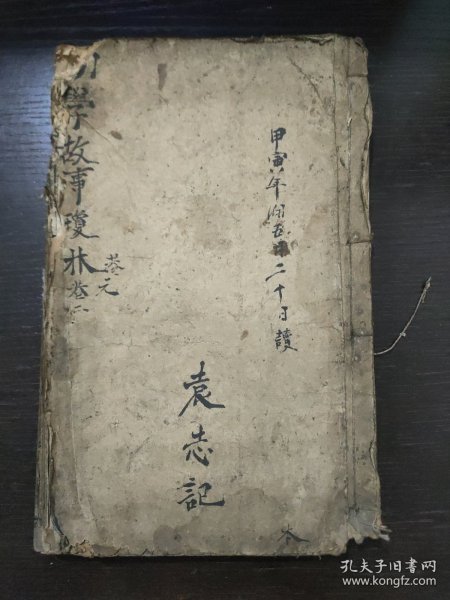 甲寅年閏五月二十日讀
本
袁志記
卷元
幼學故事瓊林卷
孔夫子旧书网
www.kongfz.com